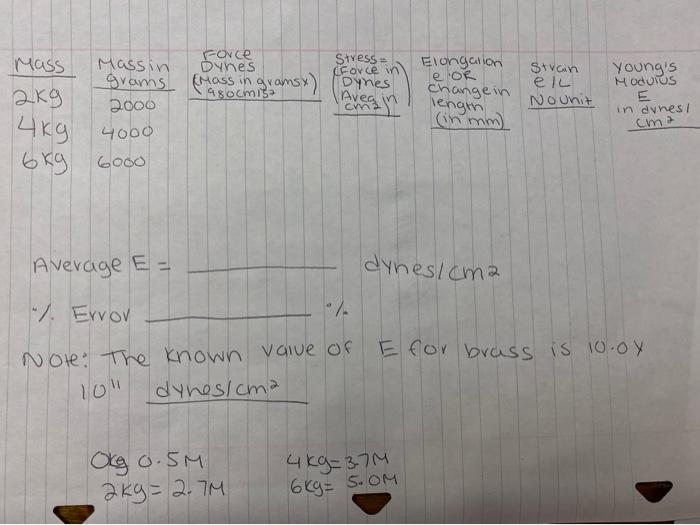 Mass
Mass in grams
Force Dynes (Mass in grams x) 980cm/s2
Stress = (Force in Dynes Area in cm2)
Elongation e OR change in length (in mm)
Strain e/L No Unit
Young's Modulus E in dynes/ cm2
2kg 2000
4kg 4000
6kg 6000
Average E = ________ dynes/cm2
% Error ________ %
Note: The known value of E for brass is 10.0x
10" dynes/cm2
0kg 0.5M 4kg=3.7M
2kg=2.7M 6kg= 5.0M